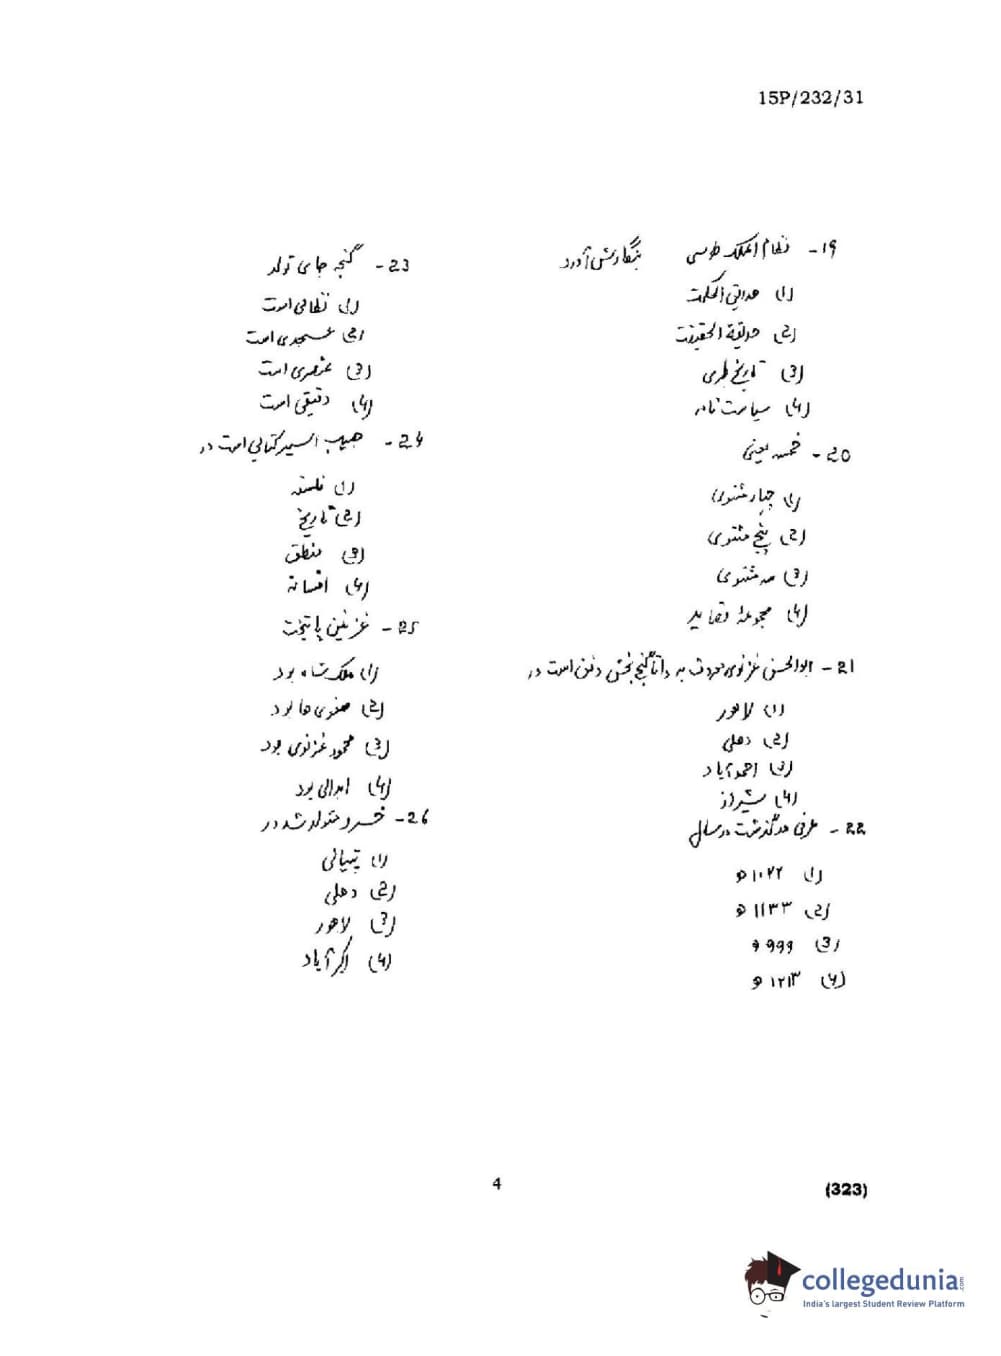 15P/232/31
19- نظام الملک طوسی بنگارش آورد
(1) حدائق الحکمت
(2) حدیقة الحقیقت
(3) تاریخ طبری
(4) سیاست نامه
20- خمسه یعنی
(1) چهار مثنوی
(2) پنج مثنوی
(3) سه مثنوی
(4) مجموعۀ قصاید
21- ابوالحسن غزنوی معروف به داتا گنج بخش دفن است در
(1) لاهور
(2) دهلی
(3) احمدآباد
(4) شیراز
22- عرفی درگذشت در سال
(1) ۱۰۲۲ ه
(2) ۱۱۳۳ ه
(3) ۹۹۹ ه
(4) ۱۲۱۳ ه
23- گنجه جای تولد
(1) نظامی است
(2) عسجدی است
(3) عنصری است
(4) دقیقی است
24- حبیب السیر کتابی است در
(1) فلسفه
(2) تاریخ
(3) منطق
(4) افسانه
25- غزنین پایتخت
(1) ملک شاه بود
(2) صفوی ها بود
(3) محمود غزنوی بود
(4) ابدالی بود
26- خسرو متولد شد در
(1) پتیالی
(2) دهلی
(3) لاهور
(4) اکبرآباد
4
(323)
collegedunia.com
India's largest Student Review Platform